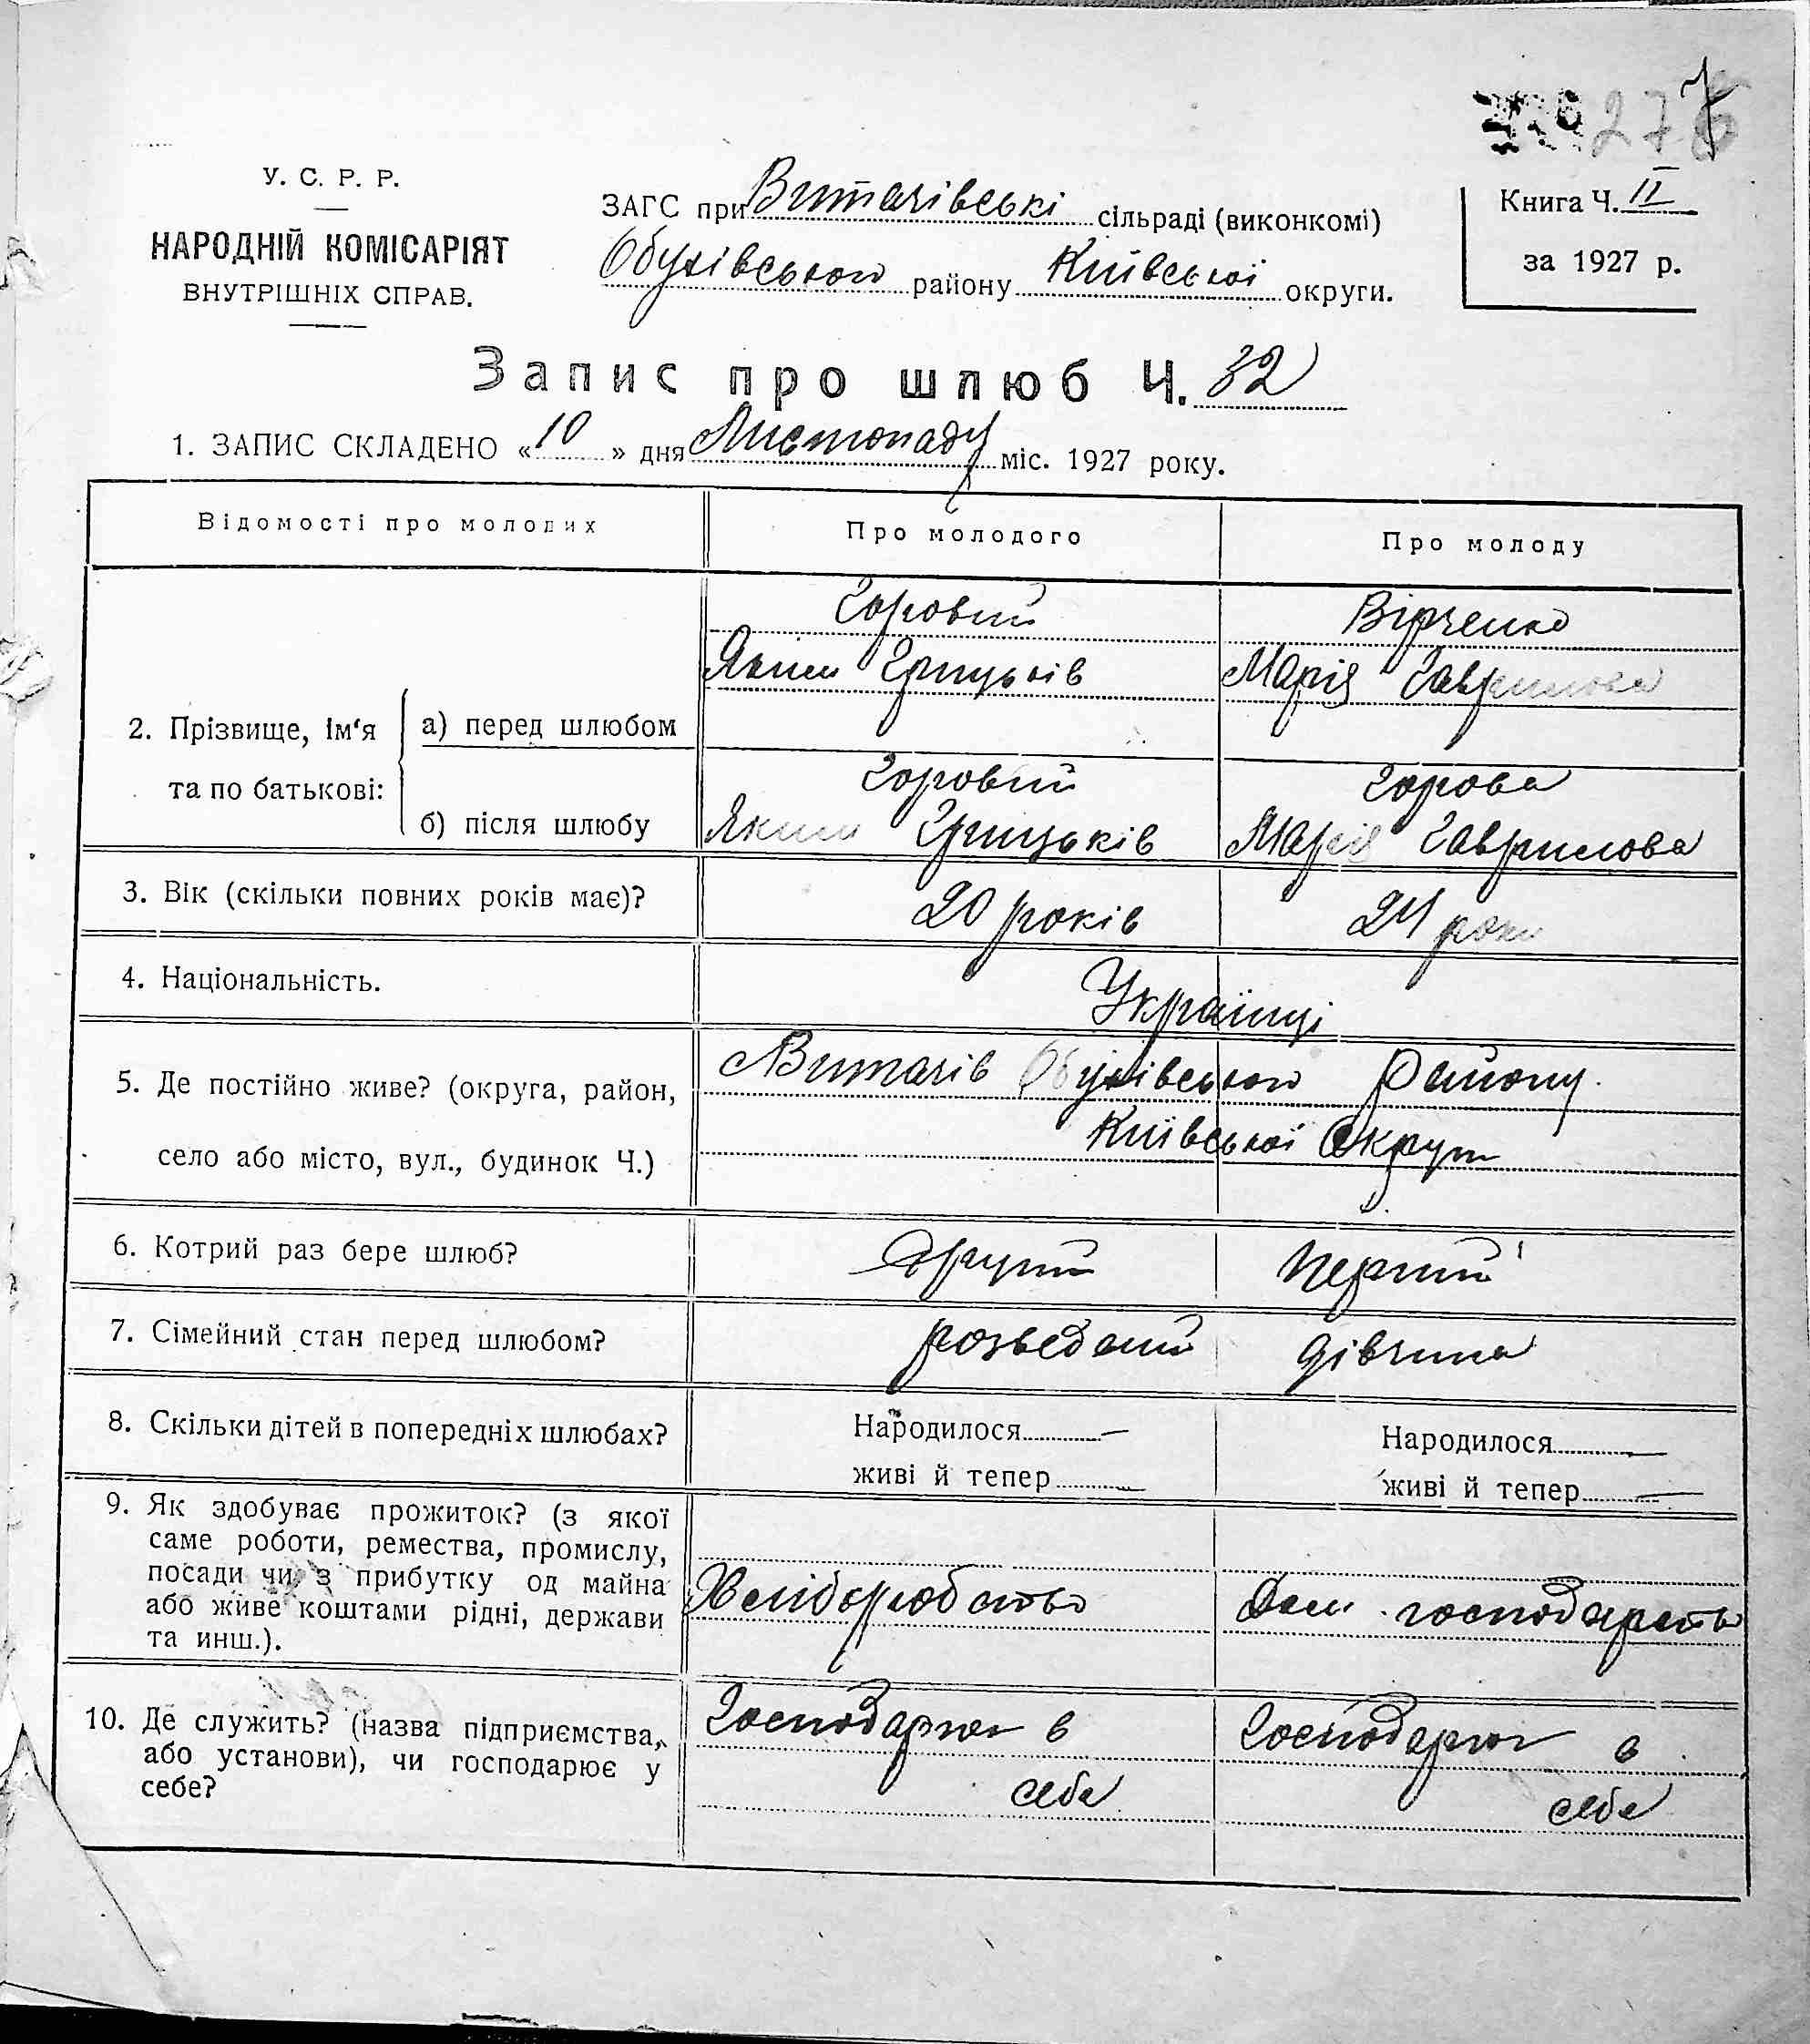 277
У. С. Р. Р.
НАРОДНІЙ КОМІСАРІЯТ
ВНУТРІШНІХ СПРАВ.
ЗАГС при Витачівські сільраді (виконкомі)
Обухівського району Київської округи.
Книга Ч. II
за 1927 р.
Запис про шлюб Ч. 32
1. ЗАПИС СКЛАДЕНО «10» дня Листопаду міс. 1927 року.
Відомості про молодих
Про молодого
Про молоду
2. Прізвище, Ім'я та по батькові:
а) перед шлюбом
Горовий
Яким Грицьків
Вірченко
Марія Гаврилова
б) після шлюбу
Горовий
Яким Грицьків
Горова
Марія Гаврилова
3. Вік (скільки повних років має)?
20 років
24 роки
4. Національність.
Українці
5. Де постійно живе? (округа, район,
село або місто, вул., будинок Ч.)
Витачів Обухівського Району.
Київської Округи
6. Котрий раз бере шлюб?
Другий
Перший
7. Сімейний стан перед шлюбом?
розведений
дівчина
8. Скільки дітей в попередніх шлюбах?
Народилося —
живі й тепер —
Народилося —
живі й тепер —
9. Як здобуває прожиток? (з якої
саме роботи, ремества, промислу,
посади чи з прибутку од майна
або живе коштами рідні, держави
та инш.).
Хліборобство
Дом. господарство
10. Де служить? (назва підприємства,
або установи), чи господарює у
себе?
Господарює в
себе
Господарює в
себе